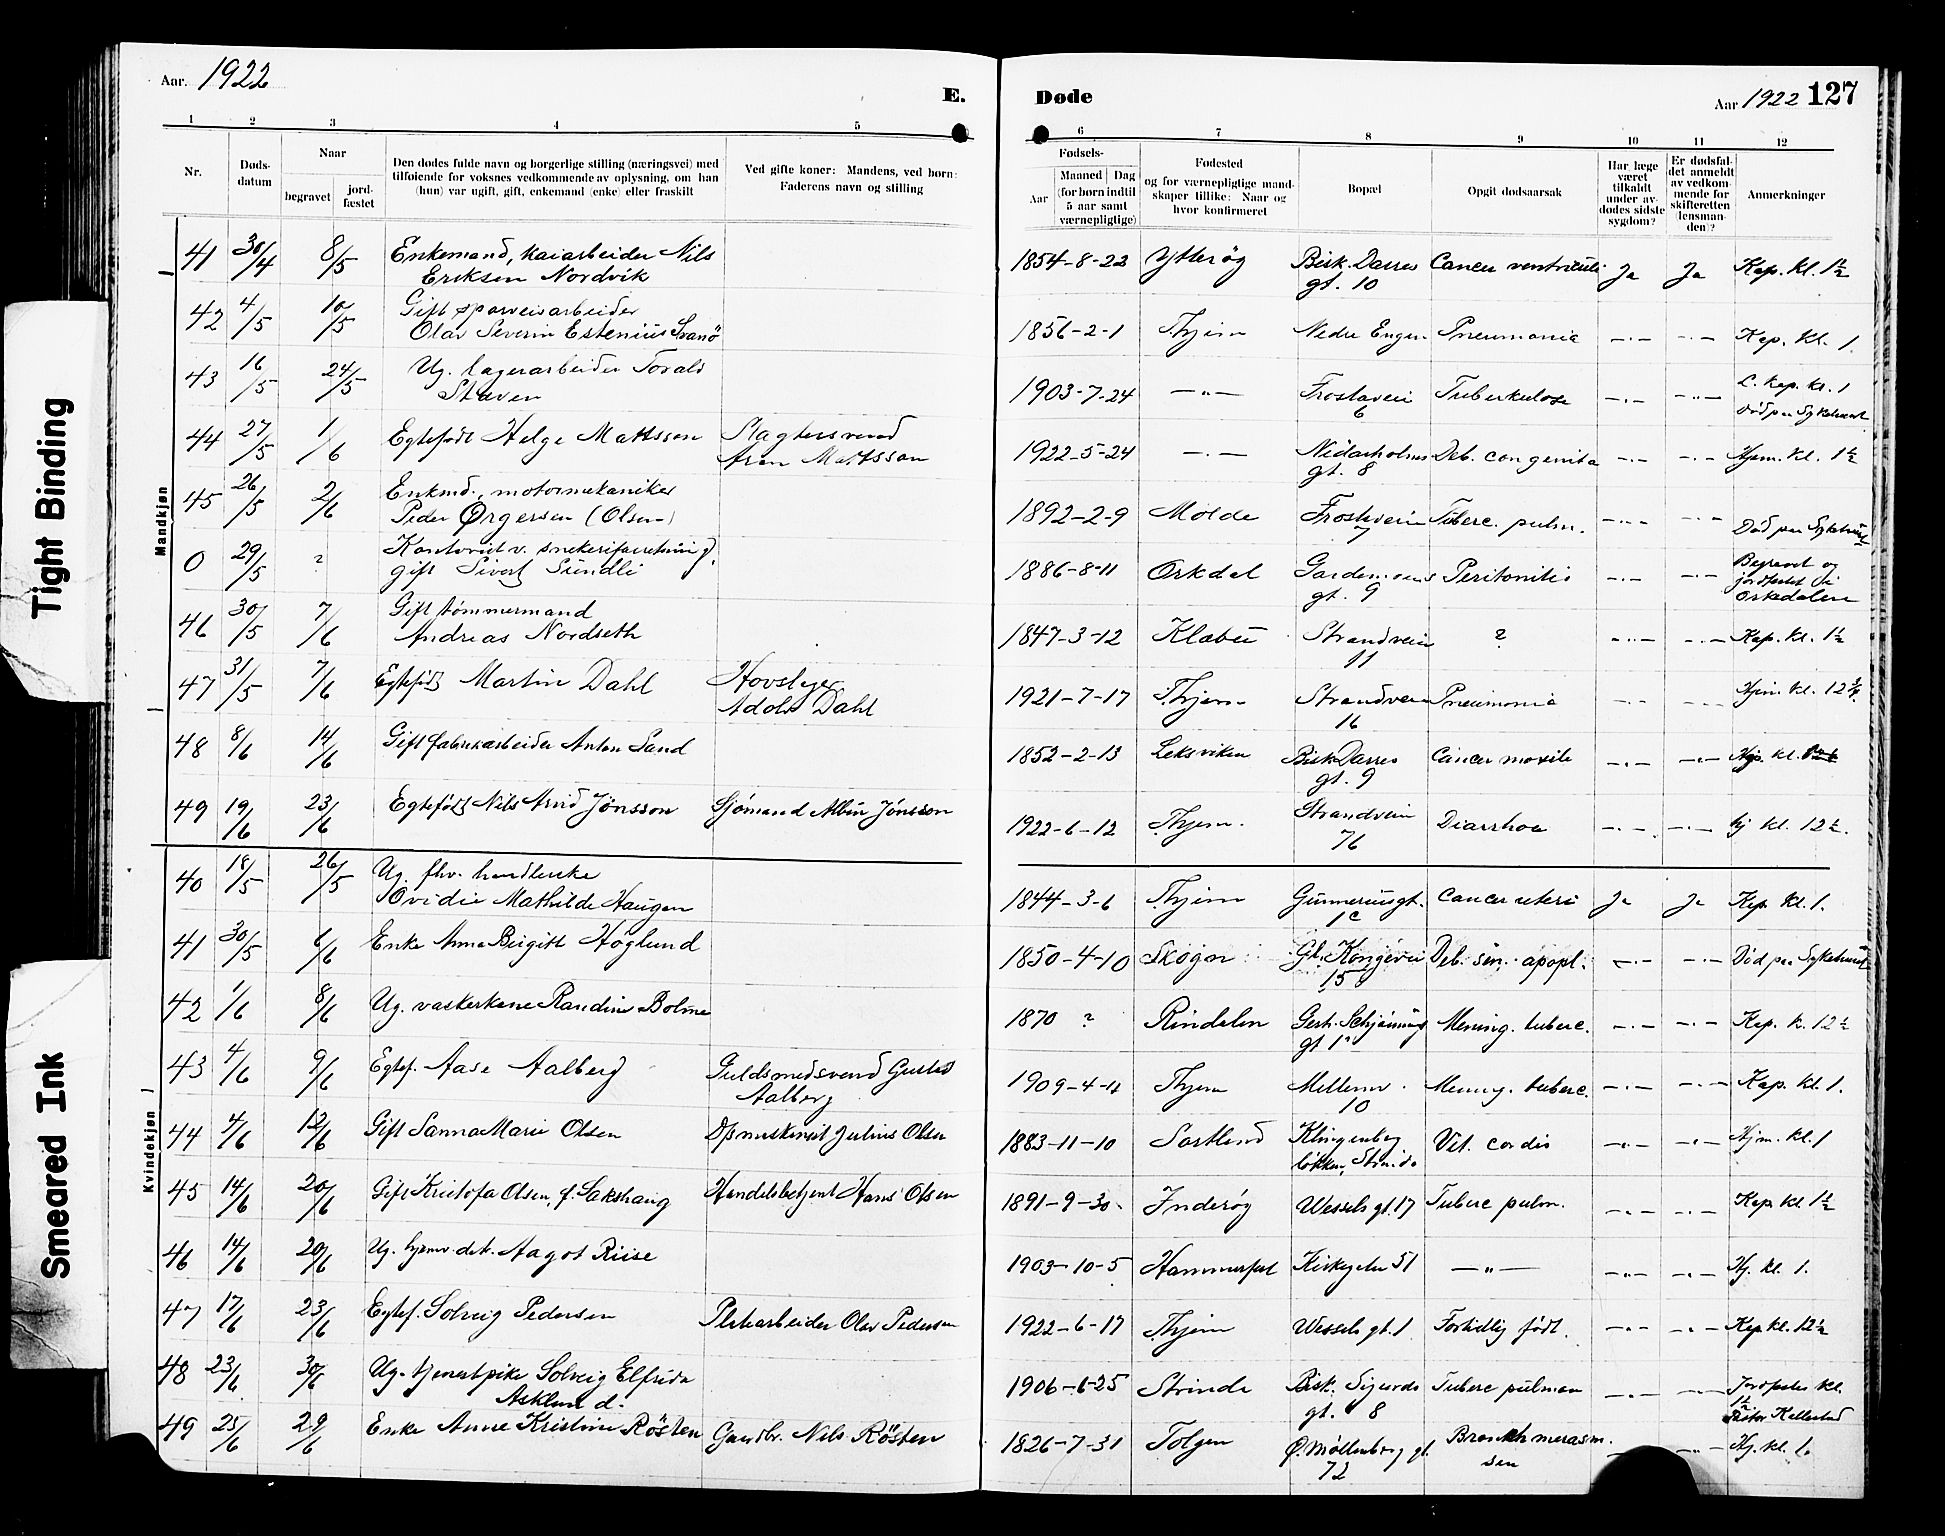 Aar. 1922
E.
Døde
Aar 1922 127
1 2 3 4 5
6 7 8 9 10 11 12
Nr.
Døds-
datum
Naar
begravet
jord-
fæstet
Den dødes fulde navn og borgerlige stilling (næringsvei) med
tilføiende for voksnes vedkommende av oplysning, om han
(hun) var ugift, gift, enkemand (enke) eller fraskilt
Ved gifte koner: Mandens, ved børn:
Faderens navn og stilling
Fødsels-
Aar
Maaned Dag
(for børn indtil
5 aar samt
værnepligtige)
Fødested
og for værnepligtige mand-
skaper tillike: Naar og
hvor konfirmeret
Bopæl
Opgit dødsaarsak
Har læge
været
tilkaldt
under av-
dødes sidste
sygdom?
Er dødsfal-
det anmeldt
av vedkom-
mende for
skifteretten
(lensman-
den)?
Anmerkninger
Tight Binding
Smeared Ink
Mandkjøn
Kvindekjøn
41 30/4 8/5 Enkemand, kaiarbeider Nils
Eriksen Nordvik
1854-8-22 Ytterøg Bisk. Darres Cancer ventriculi Ja Ja Kap. kl. 1½
gt. 10
42 4/5 10/5 Gift sporveisarbeider
Olav Severin Estenius Svanö
1856-2-1 Thjem Nedre Enger Pneumonia -"- -"- Kap. Kl. 1.
43 16/5 24/5 Ug. lagerarbeider Torald
Staven
1903-7-24 -"- Frostaveii Tuberkulose -"- -"- L. kap. kl. 1
6 Død paa Sykehuset
44 27/5 1/6 Egtefødt Helge Mattsson Slagtersvend
Aron Mattsson
1922-5-24 -"- Nidarholms Deb. congenita -"- -"- Hjem. kl. 1½
gt. 8
45 26/5 2/6 Enkmd., motormekaniker
Peder Ørgersen (Olsen)
1892-2-9 Molde Frostveiin Tuberc. pulm. -"- -"- Død paa Sykehuset
7
0 29/5 ? Kontorist v. snekeriforretning,
gift Sivert Sundli
1886-8-11 Orkdal Gardemoens Peritonitis -"- -"- Begravet og
gt. 9 jordfæstet i
Orkedalen
46 30/5 7/6 Gift tømmermand
Andreas Nordseth
1847-3-12 Klæbu Strandveiin ? -"- -"- Kap. kl. 1½
11
47 31/5 7/6 Egtefødt Martin Dahl Hovslager
Adolf Dahl
1921-7-17 Thjem Strandveiin Pneumonia -"- -"- Hjem. kl. 12¾
16
48 8/6 14/6 Gift fabrikarbeider Anton Sand
1852-2-13 Leksviken Bisk Darres Cancer maxile -"- -"- kl.
gt. 9
49 19/6 23/6 Egtefødt Nils Arvid Jønsson Sjömand Albin Jónsson
1922-6-12 Thjem. Strandveiin Diarrhoe -"- -"- hj kl. 12½.
76
40 18/5 26/5 Ug. fhv. handlerske
Ovidie Mathilde Haugen
1844-3-6 Thjem Gunnerusgt. Cancer uteri Ja Ja Kap. kl. 1.
1c
41 30/5 6/6 Enke Anna Birgitt Höglund
1850-4-10 Skogn Gl. Kongevei Deb. sen. apopl. -"- -"- Død paa Sykehuset
15
42 1/6 8/6 Ug. vaskerkone Randine Bolme
1870 ? Rindalen Gerh. Schjønnings Mening. tuberc. -"- -"- Kap. k. 12½
gt 1
43 4/6 9/6 Egtef. Aase Aalberg Guldsmedsvend Gustav
Aalberg
1909-4-11 Thjem Mellemv. Mening. tuberc. -"- -"- Kap. kl. 1.
10
44 4/6 12/6 Gift Sanna Marie Olsen Dpmaskinist Julius Olsen
1883-11-10 Sortland Klingenberg Vit. cordis -"- -"- Hjm. kl. 1
løkken, Strinda
45 14/6 20/6 Gift Kristofa Olsen, f. Sakshaug Handelsbetjent Hans Olsen
1891-9-30. Inderøy Wessels gt. 17 Tuberc pulm. -"- -"- Kap kl 1½
46 14/6 20/6 Ug. hjemv. det. Aagot Riise
1903-10-5 Hammerfest Kirkegaten 51 -"- -"- -"- Hj. kl. 1.
47 17/6 23/6 Egtef. Solveig Pedersen Platearbeider Olav Pedersen
1922-6-17 Thjem Wessels gt. 1 Fortidlig født. -"- -"- Kap kl. 12½
48 23/6 30/6 Ug. tjenestpike Solveig Elfrida
Asklund.
1906-6-25 Strinda Bisk. Sigurds Tuberc pulmon -"- -"- Jordfæstes kl.
gt. 8 1½
Pastor Kallestad
49 25/6 29/6 Enke Anne Kristine Röstan Gaardbr. Nils Röstan
1826-7-31 Tolgen Ø. Møllenberg gt. Bronch marasm. -"- Hj. kl. 1.
72 sen